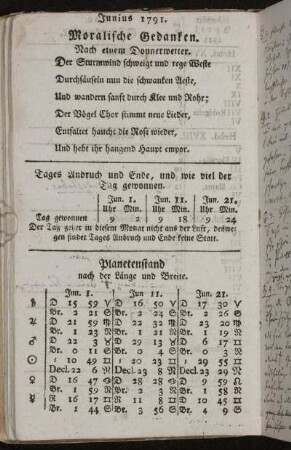 Junius 1791.
Moralische Gedanken.
Nach einem Donnerwetter.
Der Sturmwind schweigt und rege Weste
Durchsäuseln nun die schwanken Aeste,
Und wandern sanft durch Klee und Rohr;
Der Vögel Chor stimmt neue Lieder,
Entfaltet haucht die Rose wieder,
Und hebt ihr hangend Haupt empor.
Tages Anbruch und Ende, und wie viel der
Tag gewonnen.
Jun. 1. Jun. 11. Jun. 21.
Uhr Min. Uhr Min. Uhr Min.
Tag gewonnen 9 2 9 18 9 24
Der Tag gehet in diesem Monat nicht aus der Luft, deswe-
gen findet Tages Anbruch und Ende keine Statt.
Planetenstand
nach der Länge und Breite.
Jun. 1. Jun 11. Jun. 21.
♄ D 15 59 ♈ D 16 50 ♈ D 17 30 ♈
Br. 2 21 S Br. 2 24 S Br. 2 26 S
♃ D 21 59 ♍ D 22 32 ♍ D 23 20 ♍
Br. 1 23 N Br. 1 21 N Br. 1 19 N
♂ D 22 3 ♉ D 29 13 ♉ D 6 17 ♊
Br. 0 11 S Br. 0 4 S Br. 0 4 N
☉ D 10 49 ♊ D 20 23 ♊ D 29 55 ♊
Decl. 22 6 N Decl. 23 8 N Decl. 23 29 N
♀ D 16 47 ♋ D 28 28 ♋ D 9 59 ♌
Br. 1 59 N Br. 2 3 N Br. 1 58 N
☿ R 16 17 ♊ R 11 8 ♊ D 10 45 ♊
Br. 1 44 S Br. 3 56 S Br. 4 9 S